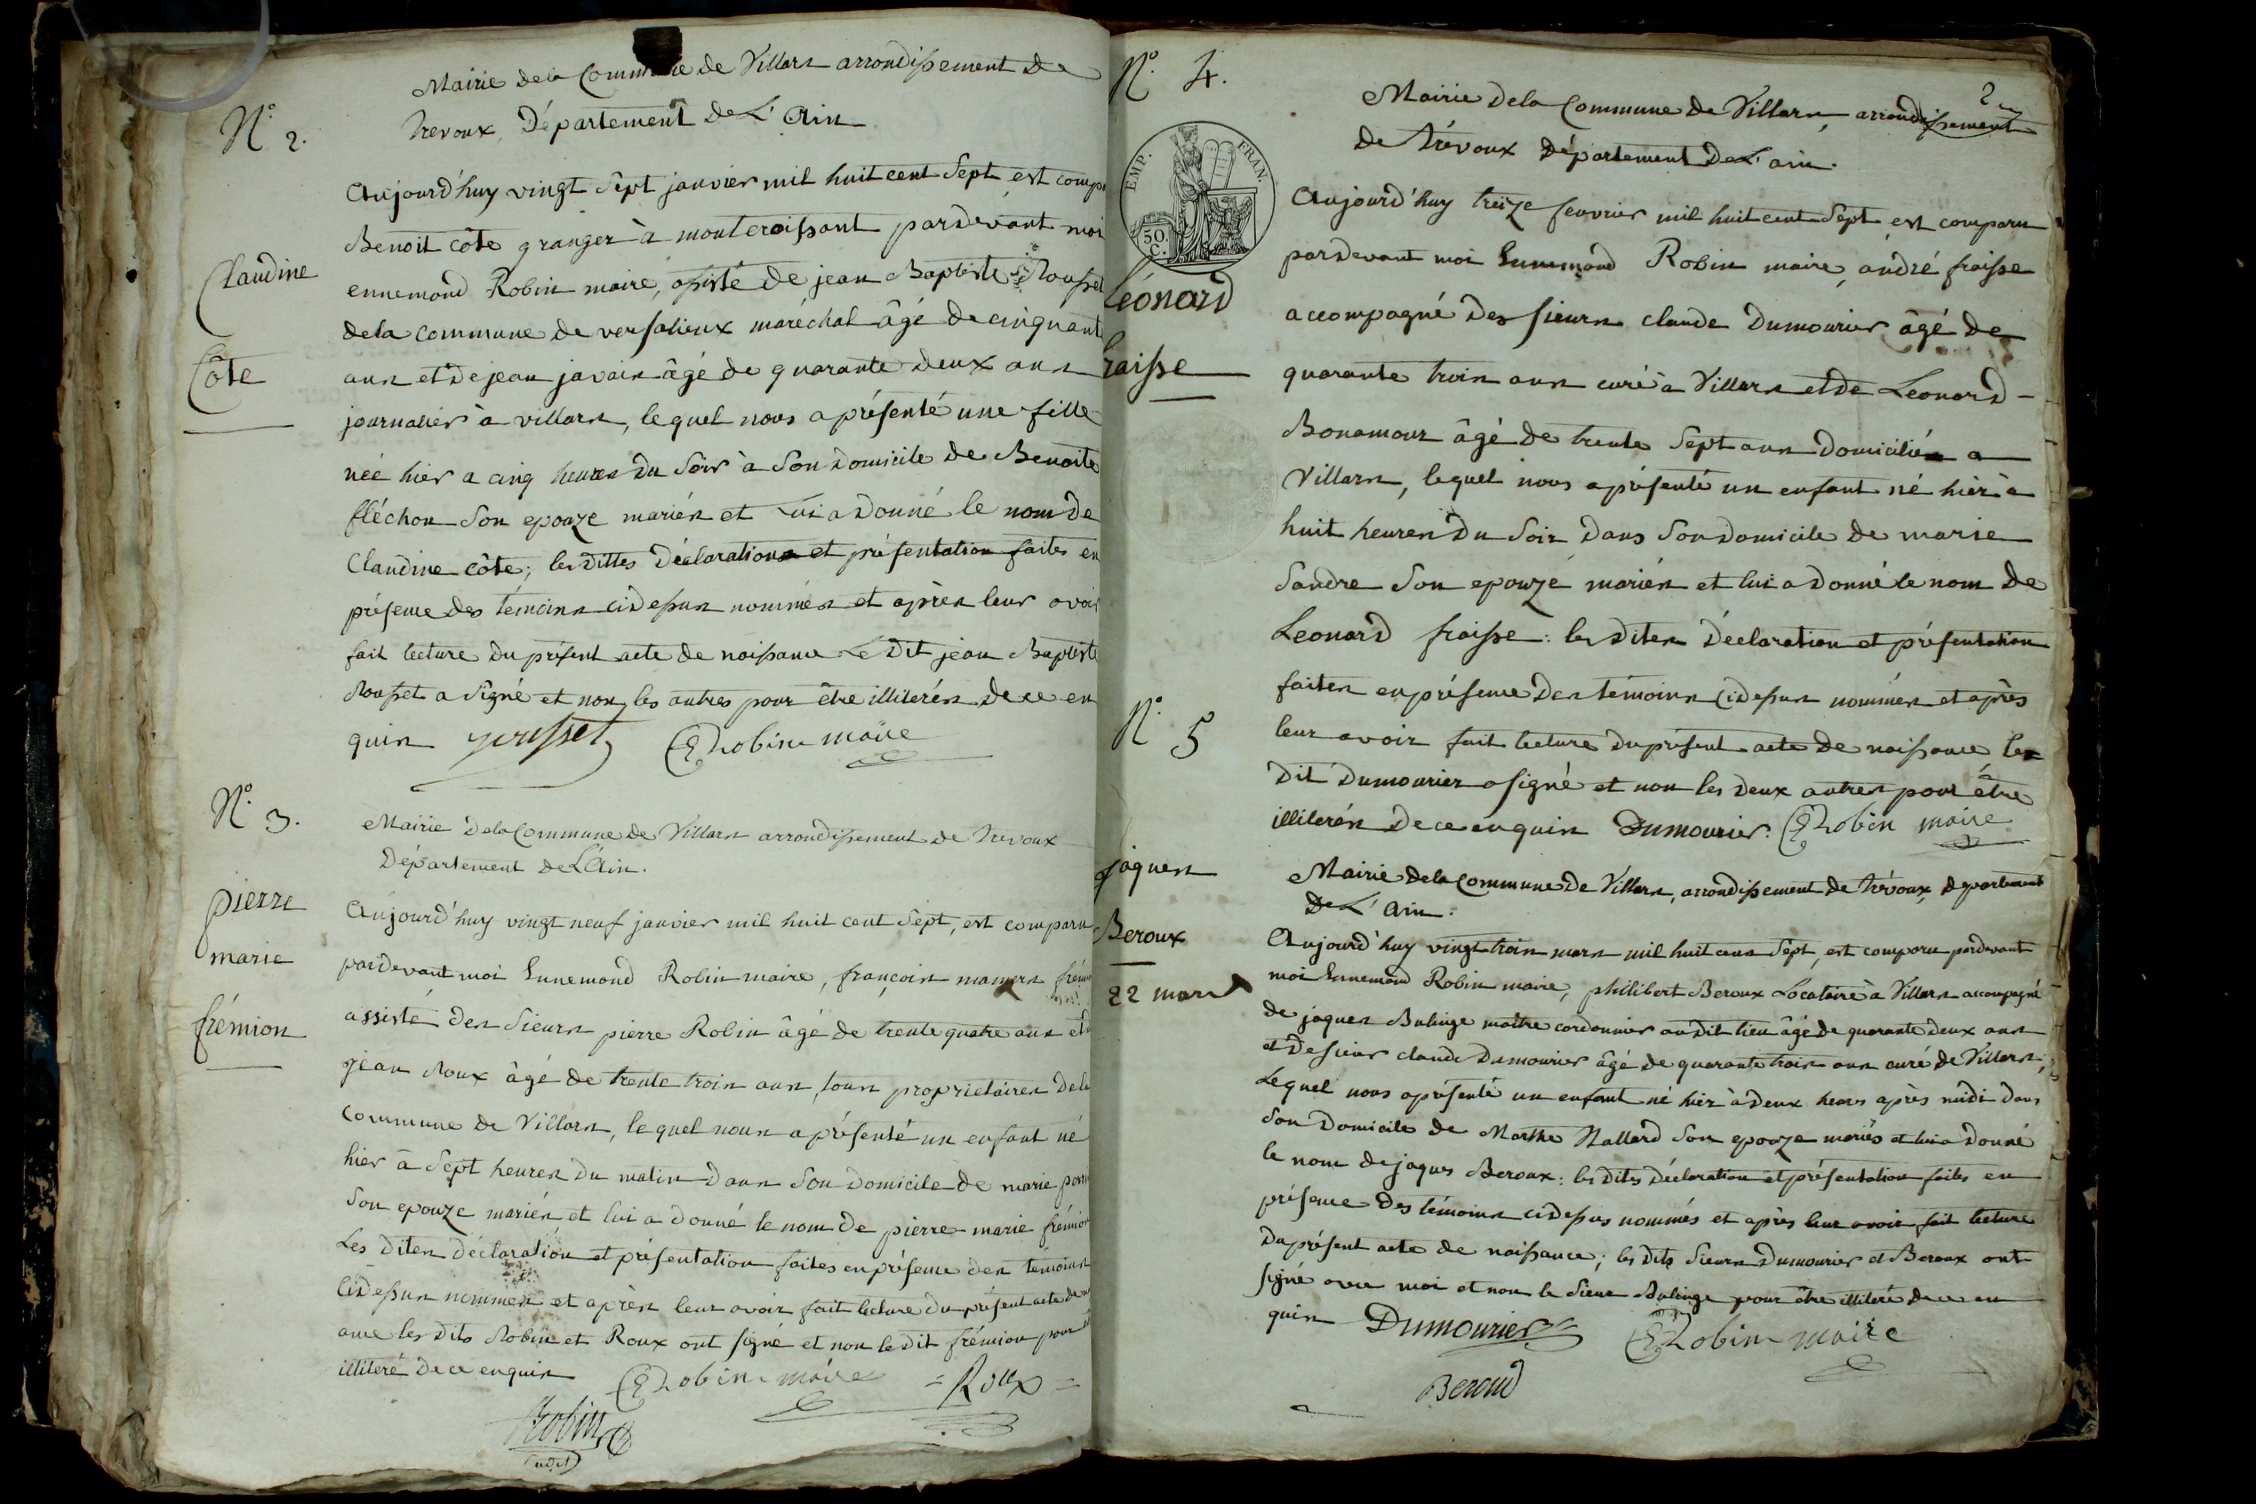 Mairie de la Commune de Villars arrondissement de
Trevoux, Département de L'Ain
N° 2.
Claudine
Côte
Aujourd'huy vingt sept janvier mil huit cent sept est comp
Benoit côte granger à montcroissant pardevant moi
ennemond Robin maire, assisté de jean Baptiste Rousset
de la commune de versalieux maréchal âgé de cinquante
ans et de jean javain âgé de quarante deux ans
journalier à villars, lequel nous a présenté une fille
née hier a cinq heures du soir à son domicile de Benoite
fléchon son epouze mariés et lui a donné le nom de
Claudine côte; les dittes déclarations et présentation faites en
présence des témoins cidessus nommés et après leur avoir
fait lecture du présent acte de naissance Le dit jean Baptiste
Rousset a signé et non les autres pour être illiterés de ce en
quis Rousset E Robin maire
N° 3.
pierre
marie
frémion
Mairie de la Commune de Villars arrondissement de Trevoux
Département de L'Ain.
Aujourd'huy vingt neuf janvier mil huit cent sept, est comparu
pardevant moi Ennemond Robin maire, françois
assisté des sieurs pierre Robin âgé de trente quatre ans et
jean Roux âgé de trente trois ans, tous proprietaires de la
commune de Villars, lequel nous a présenté un enfant né
hier à sept heures du matin dans son domicile de marie
son epouze mariés et lui a donné le nom de pierre marie frémion
Les dites déclaration et présentation faites en présence des témoins
cidessus nommés et après leur avoir fait lecture du présent acte de
ance les dits Robin et Roux ont signé et non le dit frémion pour
illiteré de ce enquis E Robin maire = Roux =
Robin
cadet
2
N° 4.
EMP. FRAN.
50. C.
Léonard
fraisse
Mairie de la Commune de Villars, arrondissement
de Trévoux département de L'ain.
Aujourd'huy treize fevrier mil huit cent sept est comparu
pardevant moi Ennemond Robin maire, andré fraisse
accompagné des sieurs claude Dumourier âgé de
quarante trois ans curé à Villars et de Leonard
Bonamour âgé de trente sept ans domiciliés a
Villars, lequel nous a présenté un enfant né hièr à
huit heures du soir dans son domicile de marie
Sandre son epouze mariés et lui a donné le nom de
Leonard fraisse: les dites déclaration et présentation
faites en présence des témoins cidessus nommés et après
leur avoir fait lecture du présent acte de naissance, le
dit Dumourier a signé et non les deux autres pour être
illiterés de ce enquis Dumourier. E Robin maire
N° 5
jaques
Beroux
22 mars
Mairie de la Commune de Villars, arrondissement de Trévoux, département
de L'Ain.
Aujourd'huy vingt trois mars mil huit cens sept, est comparu pardevant
moi Ennemond Robin maire, philibert Beroux Locataire à Villars accompagné
de jaques Bulinge maître cordonnier audit lieu âgé de quarante deux ans
et de sieur claude Dumourier âgé de quarante trois ans curé de Villars,
Lequel nous a présenté un enfant né hièr à deux heures après midi dans
son domicile de Marthe Nallard son epouze mariés et lui a donné
le nom de jaques Beroux: les dites déclaration et présentation faites en
présence des témoins cidessus nommés et après leur avoir fait lecture
du présent acte de naissance; les dits sieurs Dumourier et Beroux ont
signé avec moi et non le sieur Bulinge pour être illiteré de ce en
quis Dumourier E Robin maire
Beroud